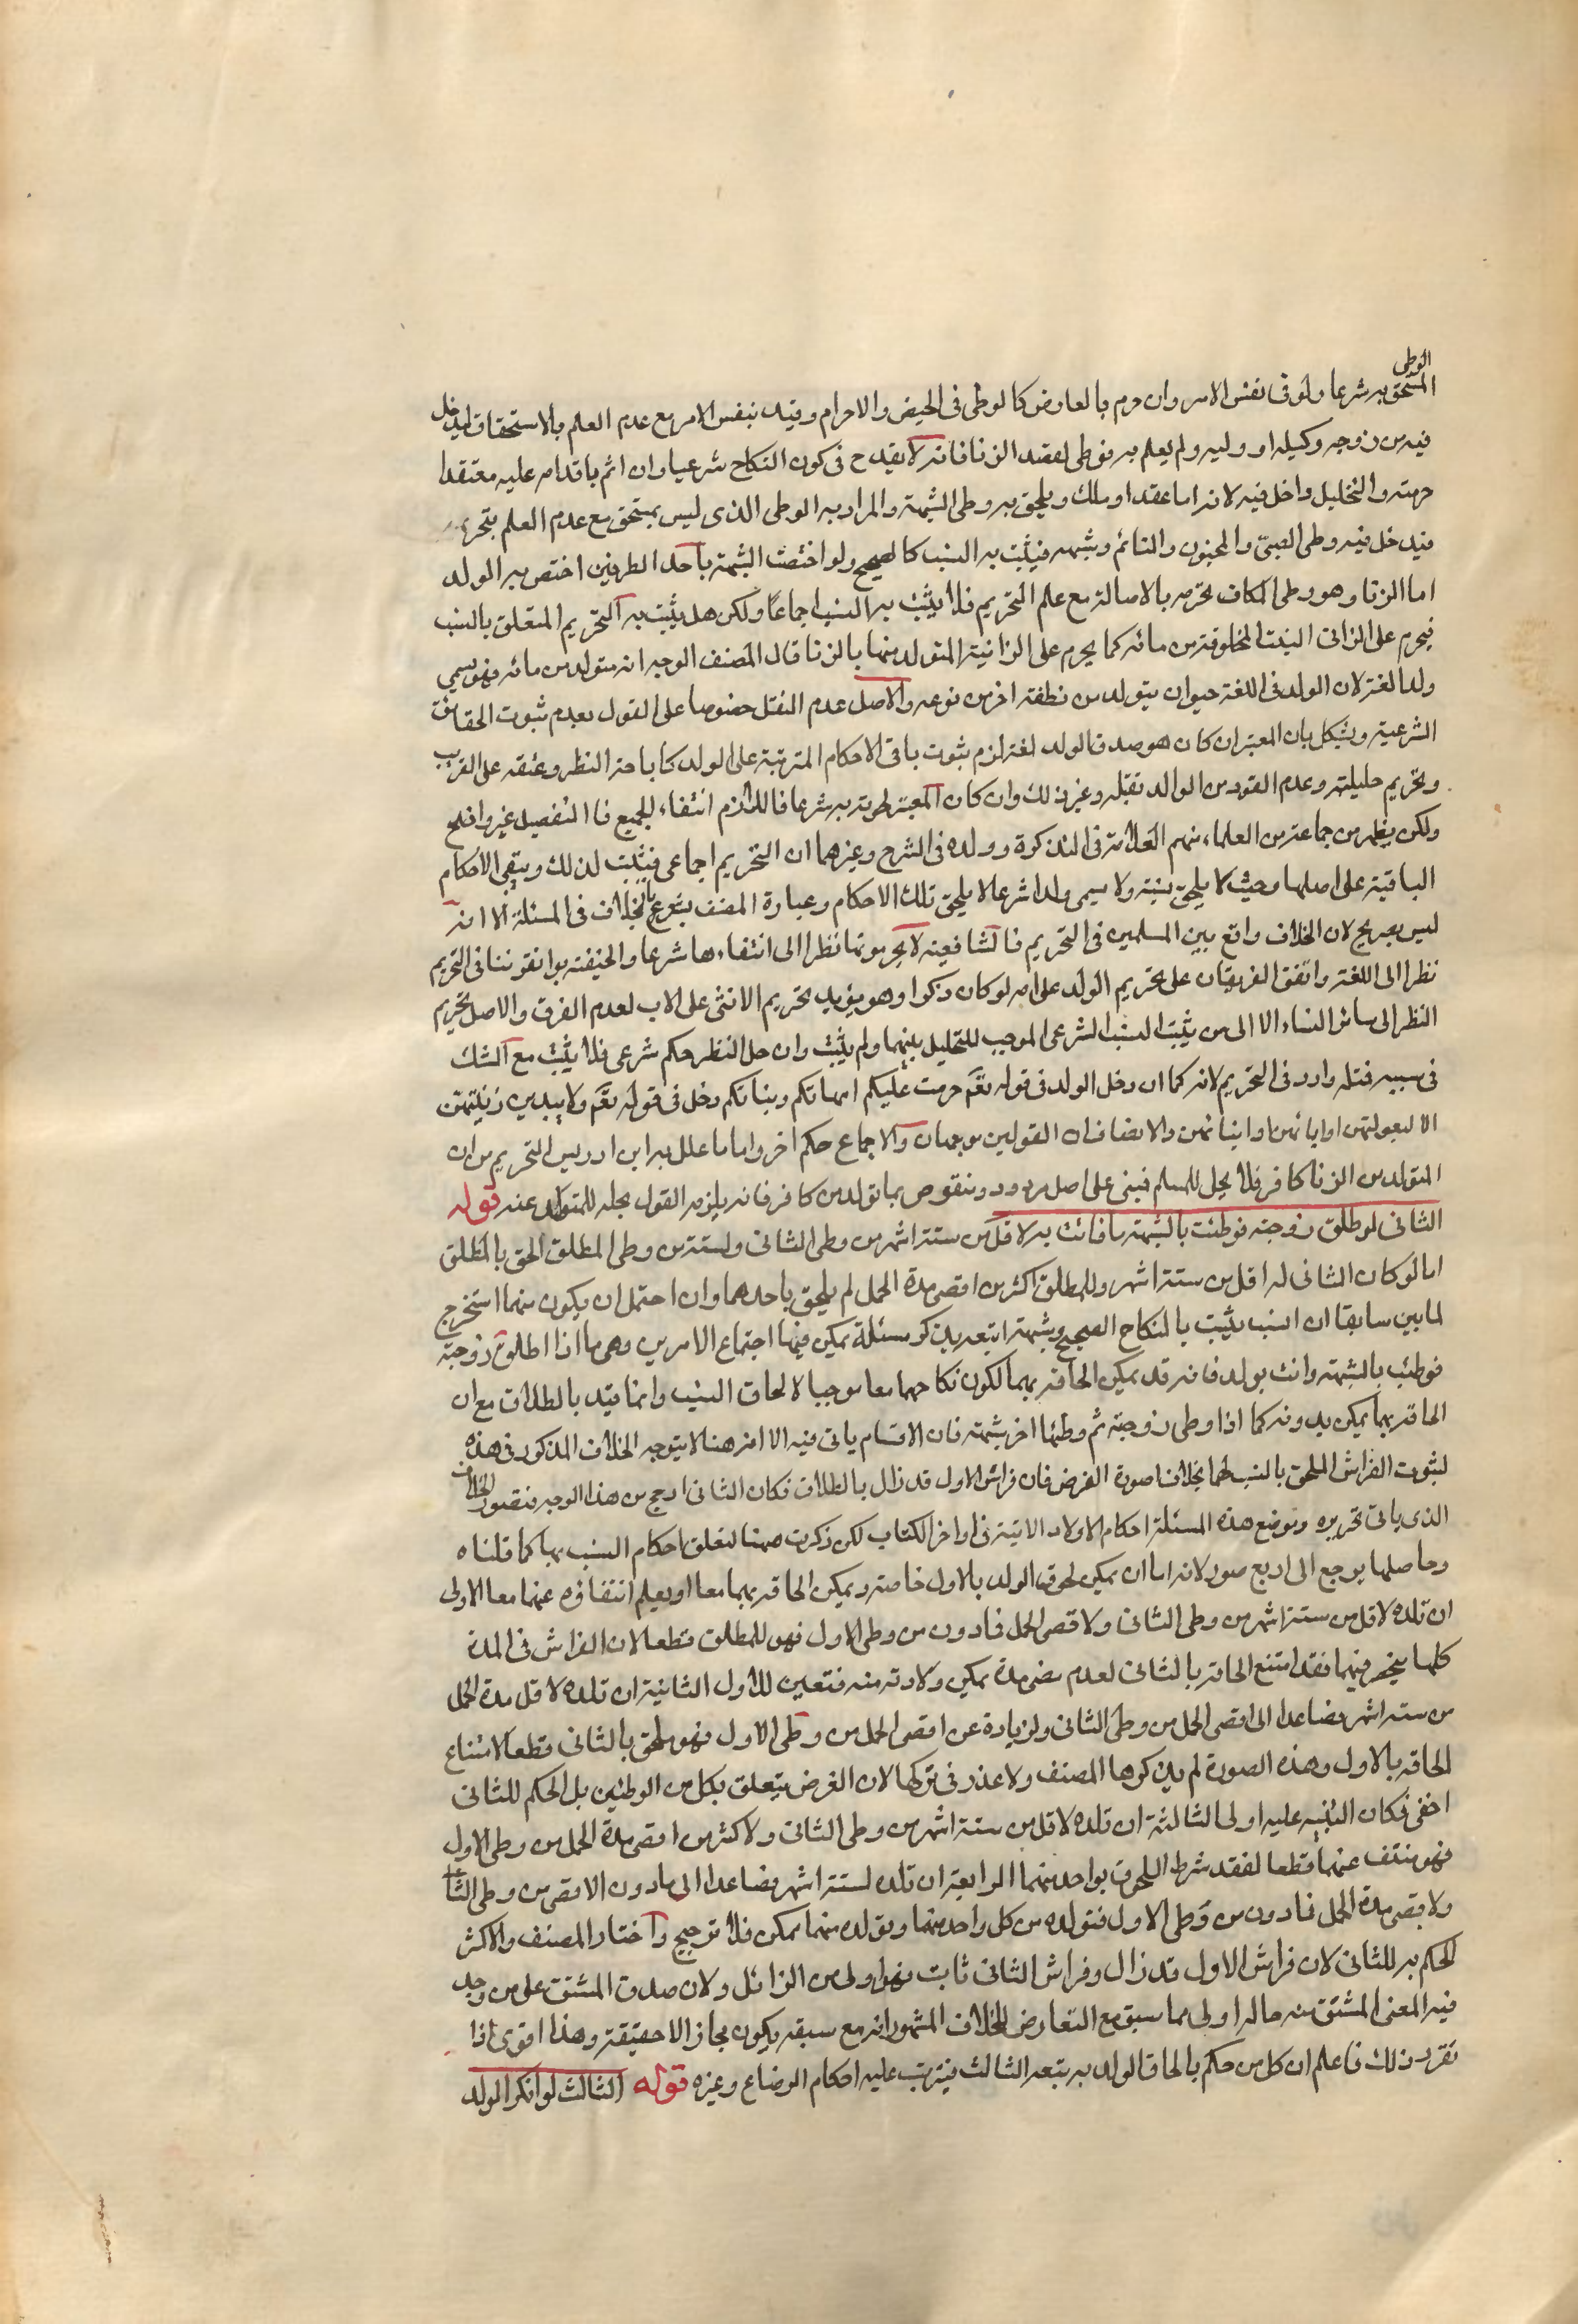 الوطی
المستحق به شرعا ولو فی نفس الامر وان حرم بالعارض کالوطی فی الحیض والاحرام وقید بنفس الامر مع عدم العلم بالاستحقاق لیدخل
فیه من زوجه وکیله او ولیه ولم یعلم به فوطی لقصد الزنا فانه لا یقدح فی کون النکاح شرعیا وان اثم باقدامه علیه معتقدا
حرمته والتحلیل داخل فیه لانه اما عقد او ملک ویلحق به وطی الشبهة والمراد به الوطی الذی لیس بمستحق مع عدم العلم بتحریمه
فیدخل فیه وطی الصبی والمجنون والنائم وشبهه فیثبت به النسب کالصحیح ولو اختصت الشبهة باحد الطرفین اختص به الولد
اما الزنا وهو وطی المکلف بحرمه بالاصالة مع علم التحریم فلا یثبت به النسب اجماعا ولکن هل یثبت به التحریم المتعلق بالنسب
فیحرم علی الزانی البنت المخلوقة من مائه کما یحرم علی الزانیة المتولد منها بالزنا قال المصنف الوجه انه متولد من مائه فهو یسمی
ولدا لغة لان الولد فی اللغة حیوان یتولد من نطفة اخر من نوعه والاصل عدم النقل خصوصا علی القول بعدم ثبوت الحقائق
الشرعیة ویشکل بان المعتبر ان کان هو صدق الولد لغة لزم ثبوت باقی الاحکام المترتبة علی الولد کاباحة النظر وعتقه علی القریب
وتحریم حلیلته وعدم القود من الوالد بقتله وغیر ذلک وان کان المعتبر لحوقه به شرعا فاللازم انتفاء الجمیع فالتفصیل غیر واضح
ولکن یظهر من جماعة من العلماء منهم العلامة فی التذکرة وولده فی الشرح وغیرهما ان التحریم اجماعی فیثبت لذلک ویبقی الاحکام
الباقیة علی اصلها وحیث لا یلحق نسبه ولا یسمی ولدا شرعا لا یلحق تلک الاحکام وعبارة المصنف یشعر بالخلاف فی المسئلة الا انه
لیس بصریح لان الخلاف واقع بین المسلمین فی التحریم فالشافعیة لا یحرمونها نظرا الی انتفاءها شرعا والحنفیة یوافقوننا فی التحریم
نظرا الی اللغة واتفق الفریقان علی تحریم الولد علی امه لو کان ذکرا وهو یؤید تحریم الانثی علی الاب لعدم الفرق والاصل تحریم
النظر الی سائر النساء الا الی من یثبت النسب الشرعی الموجب للتحلیل بینهما ولم یثبت وان حل النظر حکم شرعی فلا یثبت مع الشک
فی سببه فتله وارد فی التحریم لانه کما ان دخل الولد فی قوله تعم حرمت علیکم امهاتکم وبناتکم دخل فی قوله تعم ولا یبدین زینتهن
الا لبعولتهن او ابائهن او ابنائهن والانصاف ان القولین موجهان والاجماع حکم اخر واما ما علل به ابن ادریس التحریم من ان
المتولد من الزنا کافر فلا یحل للمسلم فبنی علی اصل مردود ومنقوص بما تولد من کافر فانه یلزمه القول بحله للمتولد عنه قوله
الثانی لو طلق زوجته فوطئت بالشبهة فاتت به لاقل من ستة اشهر من وطی الثانی ولستة من وطی المطلق الحق بالمطلق
اما لو کان الثانی له اقل من ستة اشهر وللمطلق اکثر من اقصی مدة الحمل لم یلحق باحدهما وان احتمل ان یکون منهما استخرج
لما بین سابقا ان النسب یثبت بالنکاح الصحیح وشبهته اتبعه بذکر مسئلة یمکن فیها اجتماع الامرین وهی ما اذا طلق زوجته
فوطئت بالشبهة واتت بولد فانه قد یمکن الحاقه بهما لکون نکاحهما معا موجبا لالحاق النسب وانما قید بالطلاق مع ان
الحاقه بهما یمکن بدونه کما اذا وطی زوجته ثم وطئها اخر بشبهة فان الاقسام یاتی فیه الا انه هنا لا یتوجه الخلاف المذکور فی هذه الحالات
لثبوت الفراش الملحق بالنسب لهما بخلاف صورة الفرض فان فراش الاول قد زال بالطلاق فکان الثانی ارجح من هذا الوجه فتقیید
الذی یاتی تحریره وموضع هذه المسئلة احکام الاولاد الاتیة فی اواخر الکتاب لکن ذکرت ههنا لتعلق احکام النسب بها کما قلناه
وحاصلها یرجع الی اربع صور لانه اما ان یمکن لحوق الولد بالاول خاصة ویمکن الحاقه بهما معا او یعلم انتفاؤه عنهما معا الاولی
ان تلده لاقل من ستة اشهر من وطی الثانی ولاقصی الحمل فادون من وطی الاول فهو للمطلق قطعا لان الفراش فی المدة
کلها ینحصر فیهما فقد امتنع الحاقه بالثانی لعدم مضی مدة یمکن ولادته منه فتعین للاول الثانیة ان تلده لاقل مدة الحمل
من ستة اشهر فصاعدا الی اقصی الحمل من وطی الثانی ولزیادة عن اقصی الحمل من وطی الاول فهو ملحق بالثانی قطعا لامتناع
الحاقه بالاول وهذه الصورة لم یذکرها المصنف ولا عذر فی ترکها لان الغرض یتعلق بکل من الوطئین بل الحکم للثانی
اخفی فکان التنبیه علیه اولی الثالثة ان تلده لاقل من ستة اشهر من وطی الثانی ولاکثر من اقصی مدة الحمل من وطی الاول
فهو منتف عنهما قطعا لفقد شرط اللحوق بواحد منهما الرابعة ان تلده لستة اشهر فصاعدا الی مادون الاقصی من وطی الثانی
ولاقصی مدة الحمل فادون من وطی الاول فتولده من کل واحد منهما وتولده منهما یمکن فلا ترجیح واختار المصنف والاکثر
الحکم به للثانی لان فراش الاول قد زال وفراش الثانی ثابت فهو اولی من الزائل ولان صدق المشتق علی من وجد
فیه المعنی المشتق منه حاله اولی مما سبق مع التعارض للخلاف المشهور انه مع سبقه یکون مجازا لا حقیقة وهذا اقوی اذا
تقرر ذلک فاعلم ان کل من حکم بالحاق الولد به یتبعه الثالث فیترتب علیه احکام الرضاع وغیره قوله الثالث لو انکر الولد